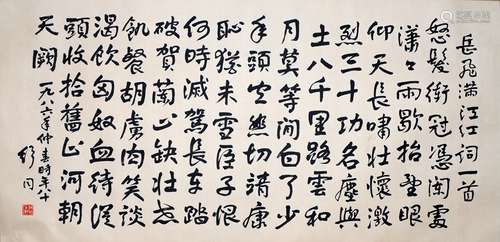 岳飛满江红詞一首
怒髮衝冠憑闌處
潇々雨歇抬望眼
仰天長嘯壮懷激
烈三十功名塵與
土八千里路雲和
月莫等閒白了少
年頭空悲切靖康
恥猶未雪臣子恨
何時滅駕長車踏
破賀蘭山缺壮志
飢餐胡虜肉笑談
渴飲匈奴血待從
頭收拾舊山河朝
天闕 一九八六年仲春時年八十
舒同